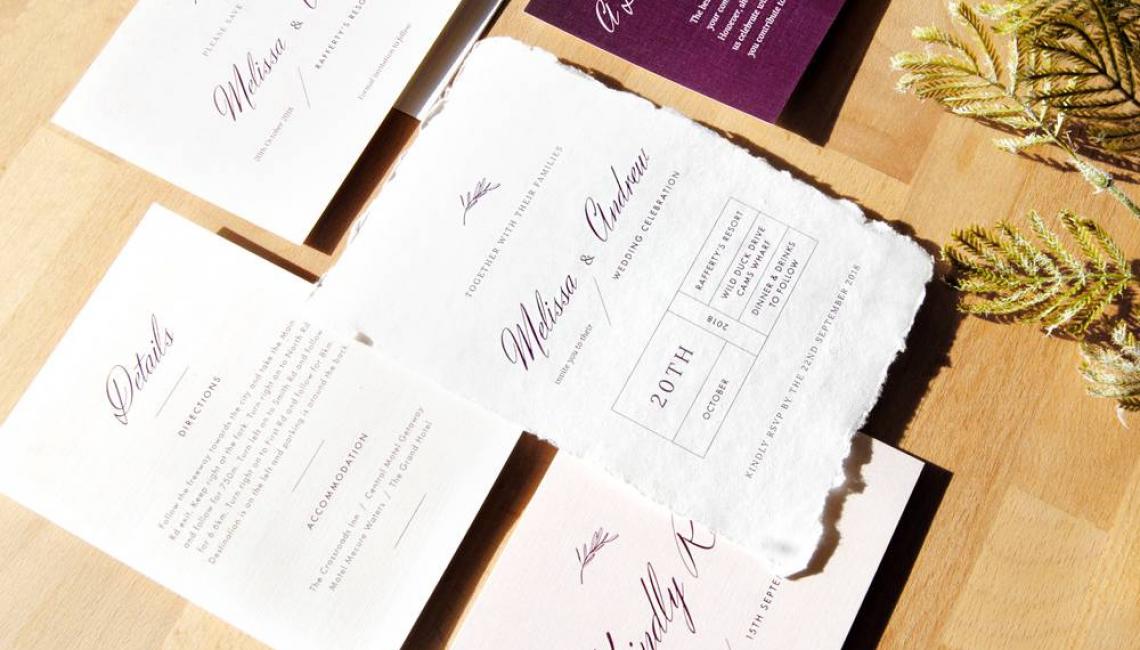 PLEASE SAVE
Melissa &
RAFFERTY'S RESO
20th October 2018
Formal invitation to follow
The be
your com
However, sh
us celebrate wi
you contribute to
TOGETHER WITH THEIR FAMILIES
Melissa & Andrew
invite you to their
WEDDING CELEBRATION
20TH
OCTOBER
2018
RAFFERTY'S RESORT
WILD DUCK DRIVE
CAMS WHARF
DINNER & DRINKS
TO FOLLOW
KINDLY RSVP BY THE 22ND SEPTEMBER 2018
Details
DIRECTIONS
Follow the freeway towards the city and take the Main
Rd exit. Keep right at the fork. Turn right on to North Rd
and follow for 750m. Turn left on to Smith Rd and follow
for 6.6km. Turn right on to First Rd and follow for 8km.
Destination is on the left and parking is around the back.
ACCOMMODATION
The Crossroads Inn / Central Motel Getaway
Motel Mecure Waters / The Grand Hotel
Kindly R
15TH SEPTE